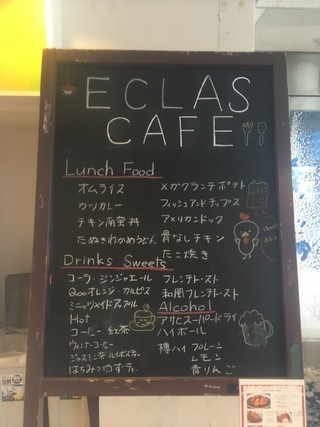 ECLAS
CAFE
Lunch Food
オムライス
カツカレー
チキン南蛮丼
たぬきわかめうどん
メガクランチポテト
フィッシュアンドチップス
アメリカンドック
骨なしチキン
たこ焼き
Drinks Sweets
コーラ・ジンジャエール
Qooオレンジ・カルピス
ミニッツメイドアップル
Hot
コーヒー・紅茶
ウィンナーコーヒー
ジャスミン茶 ルイボスティー
はちみつゆずティー
フレンチトースト
和風フレンチトースト
Alcohol
アサヒスーパードライ
ハイボール
樽ハイ プレーン
レモン
青りんご